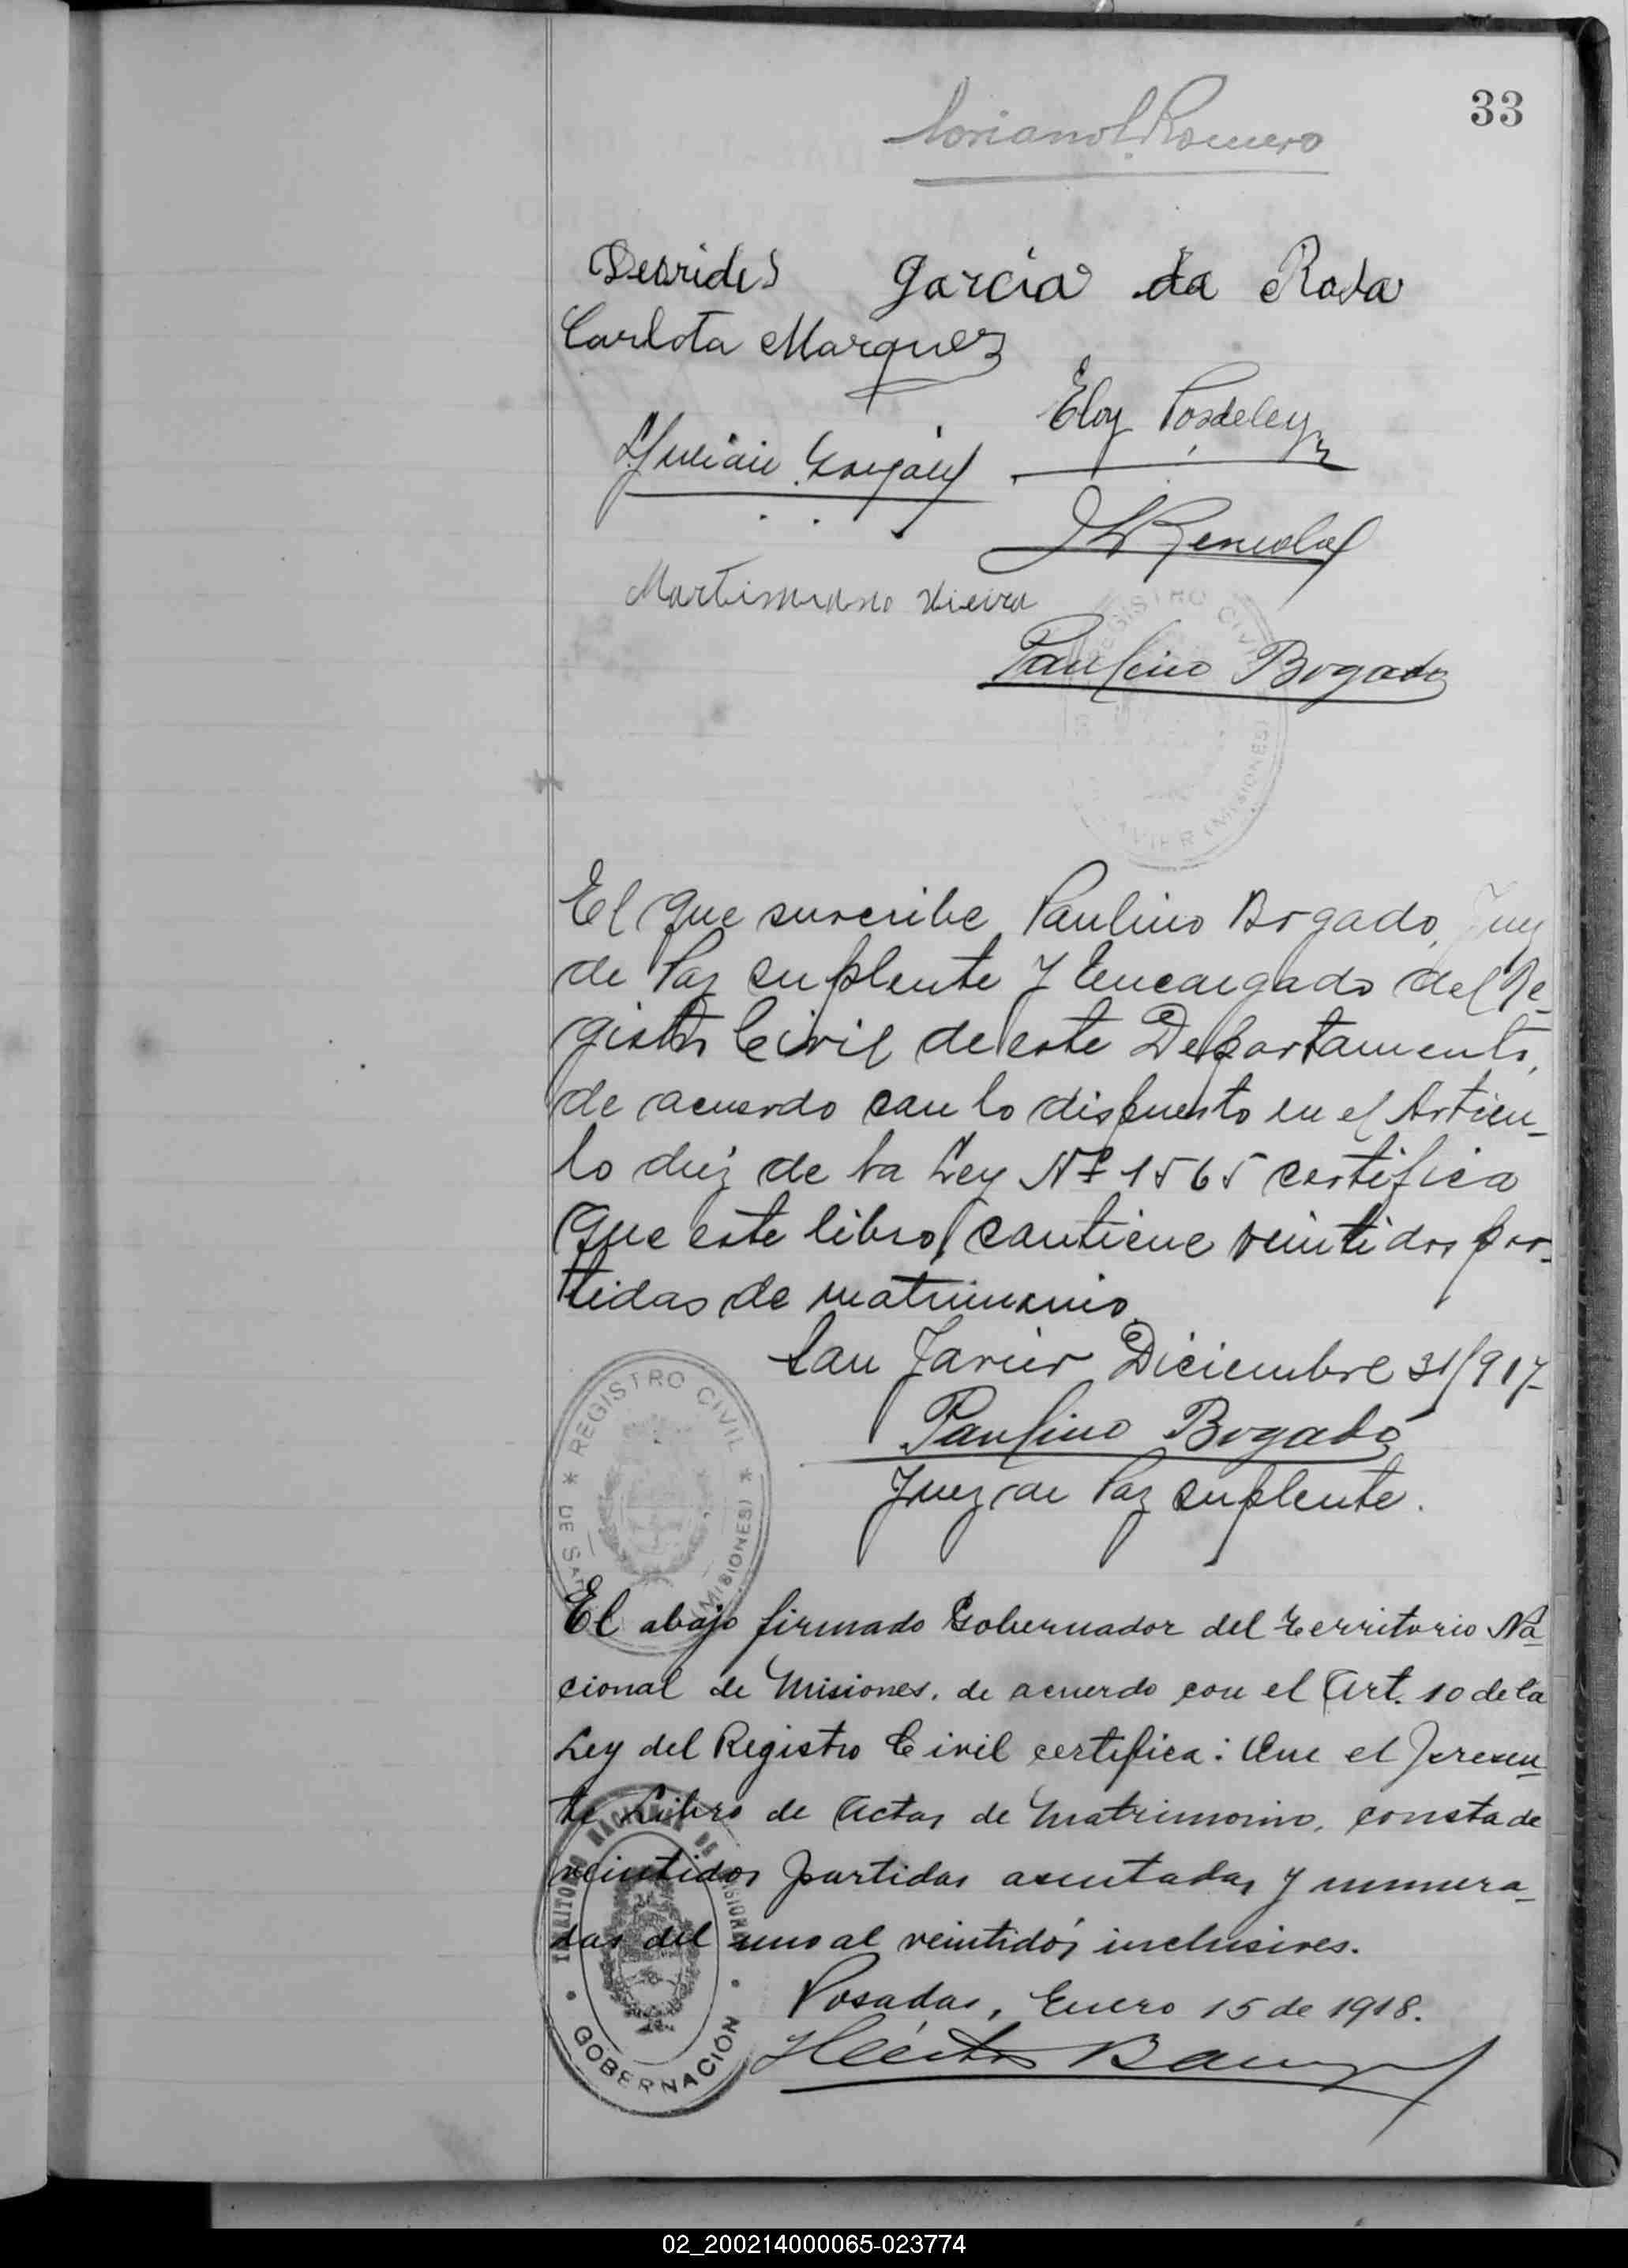 33
Romero
García da Rosa
Carlota Marquez
Eloy
Martimiano Vieira
Paulino Bogado
REGISTRO CIVIL
(MISIONES)
El que suscribe, Paulino Bogado, Juez
de Paz suplente y Encargado del Re-
gistro Civil de este Departamento,
de acuerdo con lo dispuesto en el Articu-
lo diez de la Ley Nº 1565 certifica
que este libro contiene veintidos par-
tidas de matrimonio.
San Javier Diciembre 31/917
Paulino Bogado
Juez de Paz suplente.
* REGISTRO CIVIL *
DE SAN
(MISIONES)
El abajo firmado Gobernador del Territorio Na-
cional de Misiones, de acuerdo con el Art. 10 de la
Ley del Registro Civil certifica: Que el presen-
te Libro de Actas de Matrimonio, consta de
veintidos partidas asentadas y numera-
das del uno al veintidós inclusives.
TERRITORIO NACIONAL DE MISIONES
GOBERNACIÓN
Posadas, Enero 15 de 1918.
02_200214000065-023774